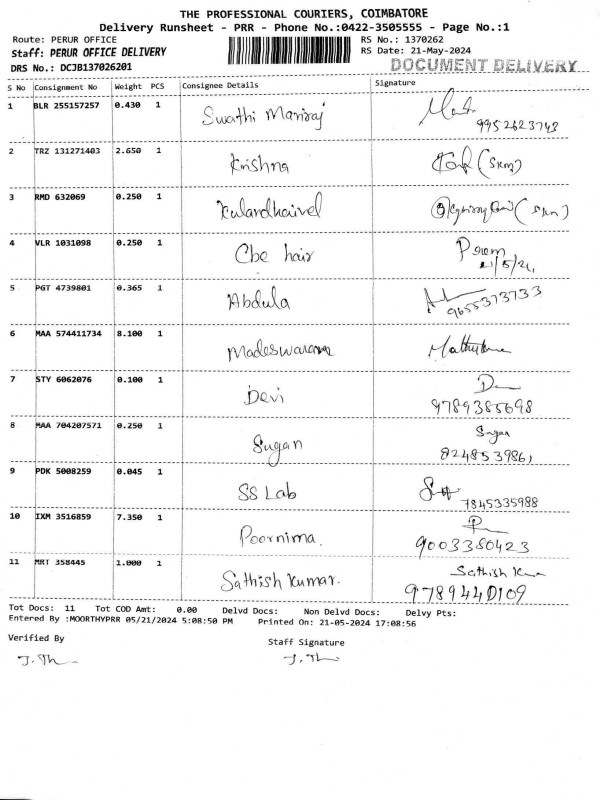 THE PROFESSIONAL COURIERS, COIMBATORE
Delivery Runsheet - PRR - Phone No.:0422-3505555 - Page No.:1
Route: PERUR OFFICE RS No.: 1370262
Staff: PERUR OFFICE DELIVERY RS Date: 21-May-2024
DRS No.: DCJB137026201 DOCUMENT DELIVERY
S No Consignment No Weight PCS Consignee Details Signature
1 BLR 255157257 0.430 1 Swathi Maniraj
9952623743
2 TRZ 131271403 2.650 1 Krishna
3 RMD 632069 0.250 1 Kulandhaivel
4 VLR 1031098 0.250 1 Cbe hair Prem
21/5/24
5 PGT 4739801 0.365 1 Abdula
9655373733
6 MAA 574411734 8.100 1 Madeswaran
7 STY 6062076 0.100 1 Devi
9789385698
8 MAA 704207571 0.250 1 Sugan Sugan
8248539861
9 PDK 5008259 0.045 1 SS Lab
7845335988
10 IXM 3516859 7.350 1 Poornima.
9003380423
11 MRT 358445 1.000 1 Sathish Kumar. Sathish Kum
9789440109
Tot Docs: 11 Tot COD Amt: 0.00 Delvd Docs: Non Delvd Docs: Delvy Pts:
Entered By :MOORTHYPRR 05/21/2024 5:08:50 PM Printed On: 21-05-2024 17:08:56
Verified By Staff Signature